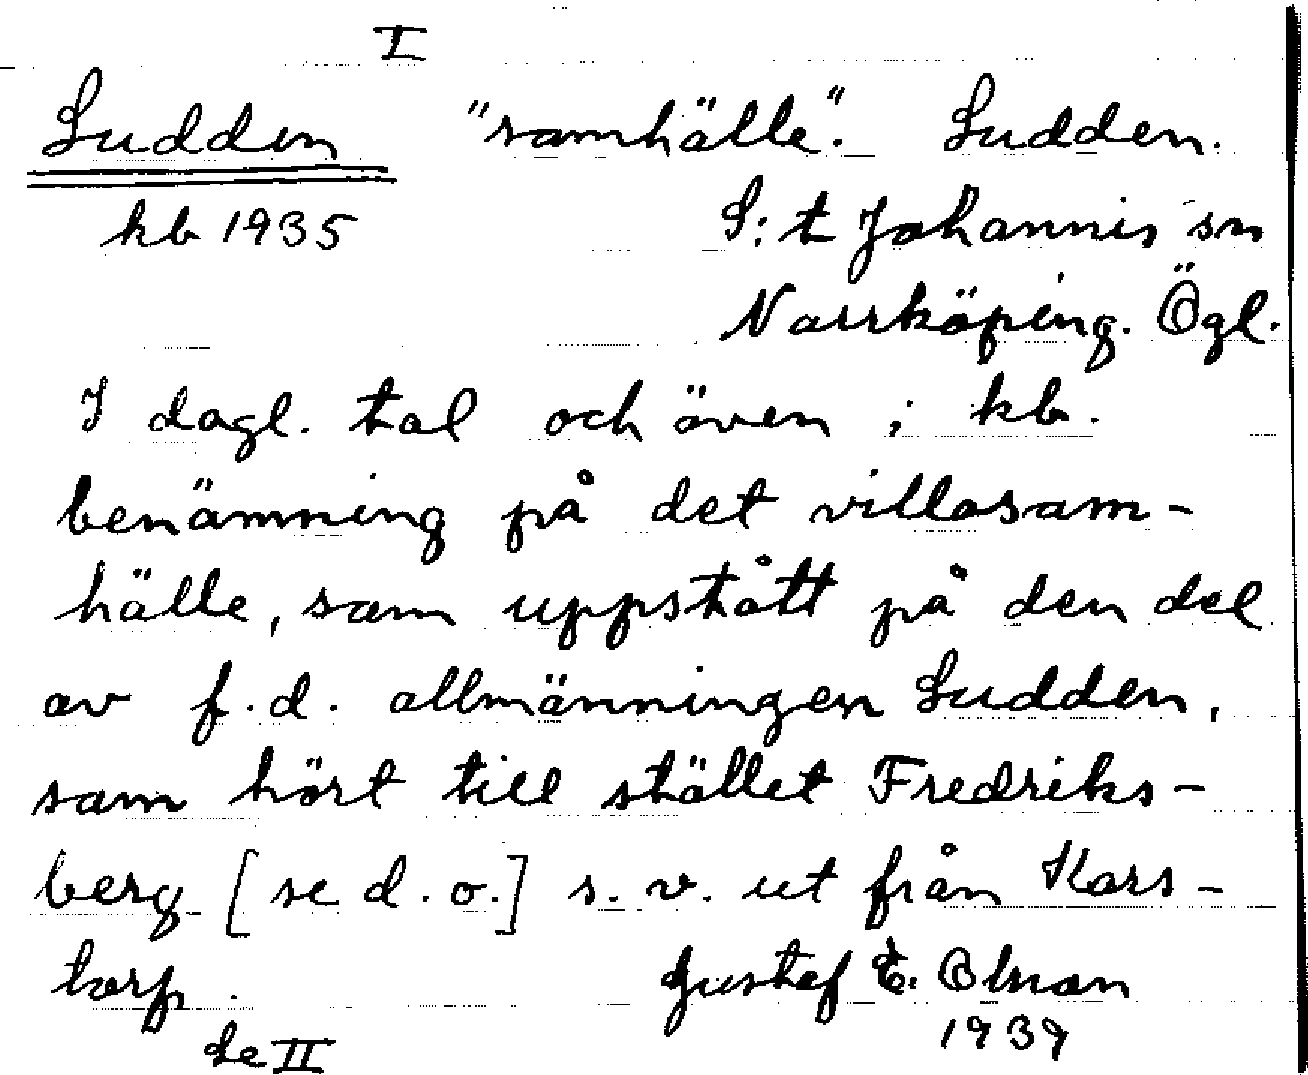 I
Sudden "samhälle". Sudden.
kb 1935 S:t Johannis sn
Norrköping. Ögl.
I dagl. tal och även i kb.
benämning på det villasam-
hälle, som uppstått på den del
av f.d. allmänningen Sudden,
som hört till stället Fredriks-
berg [se d.o.] s.v. ut från Kors-
torp.
Gustef E. Olson
1939
Se II